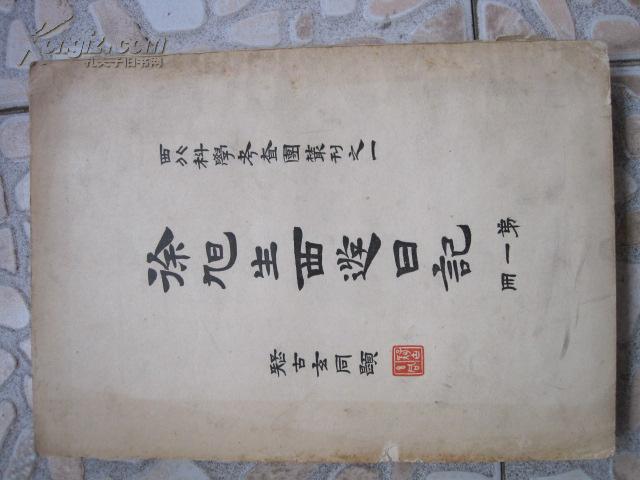 西北科學考查團叢刊之一
徐旭生西遊日記
弟一冊
疑古玄同題
Kongfz.com
孔夫子旧书网